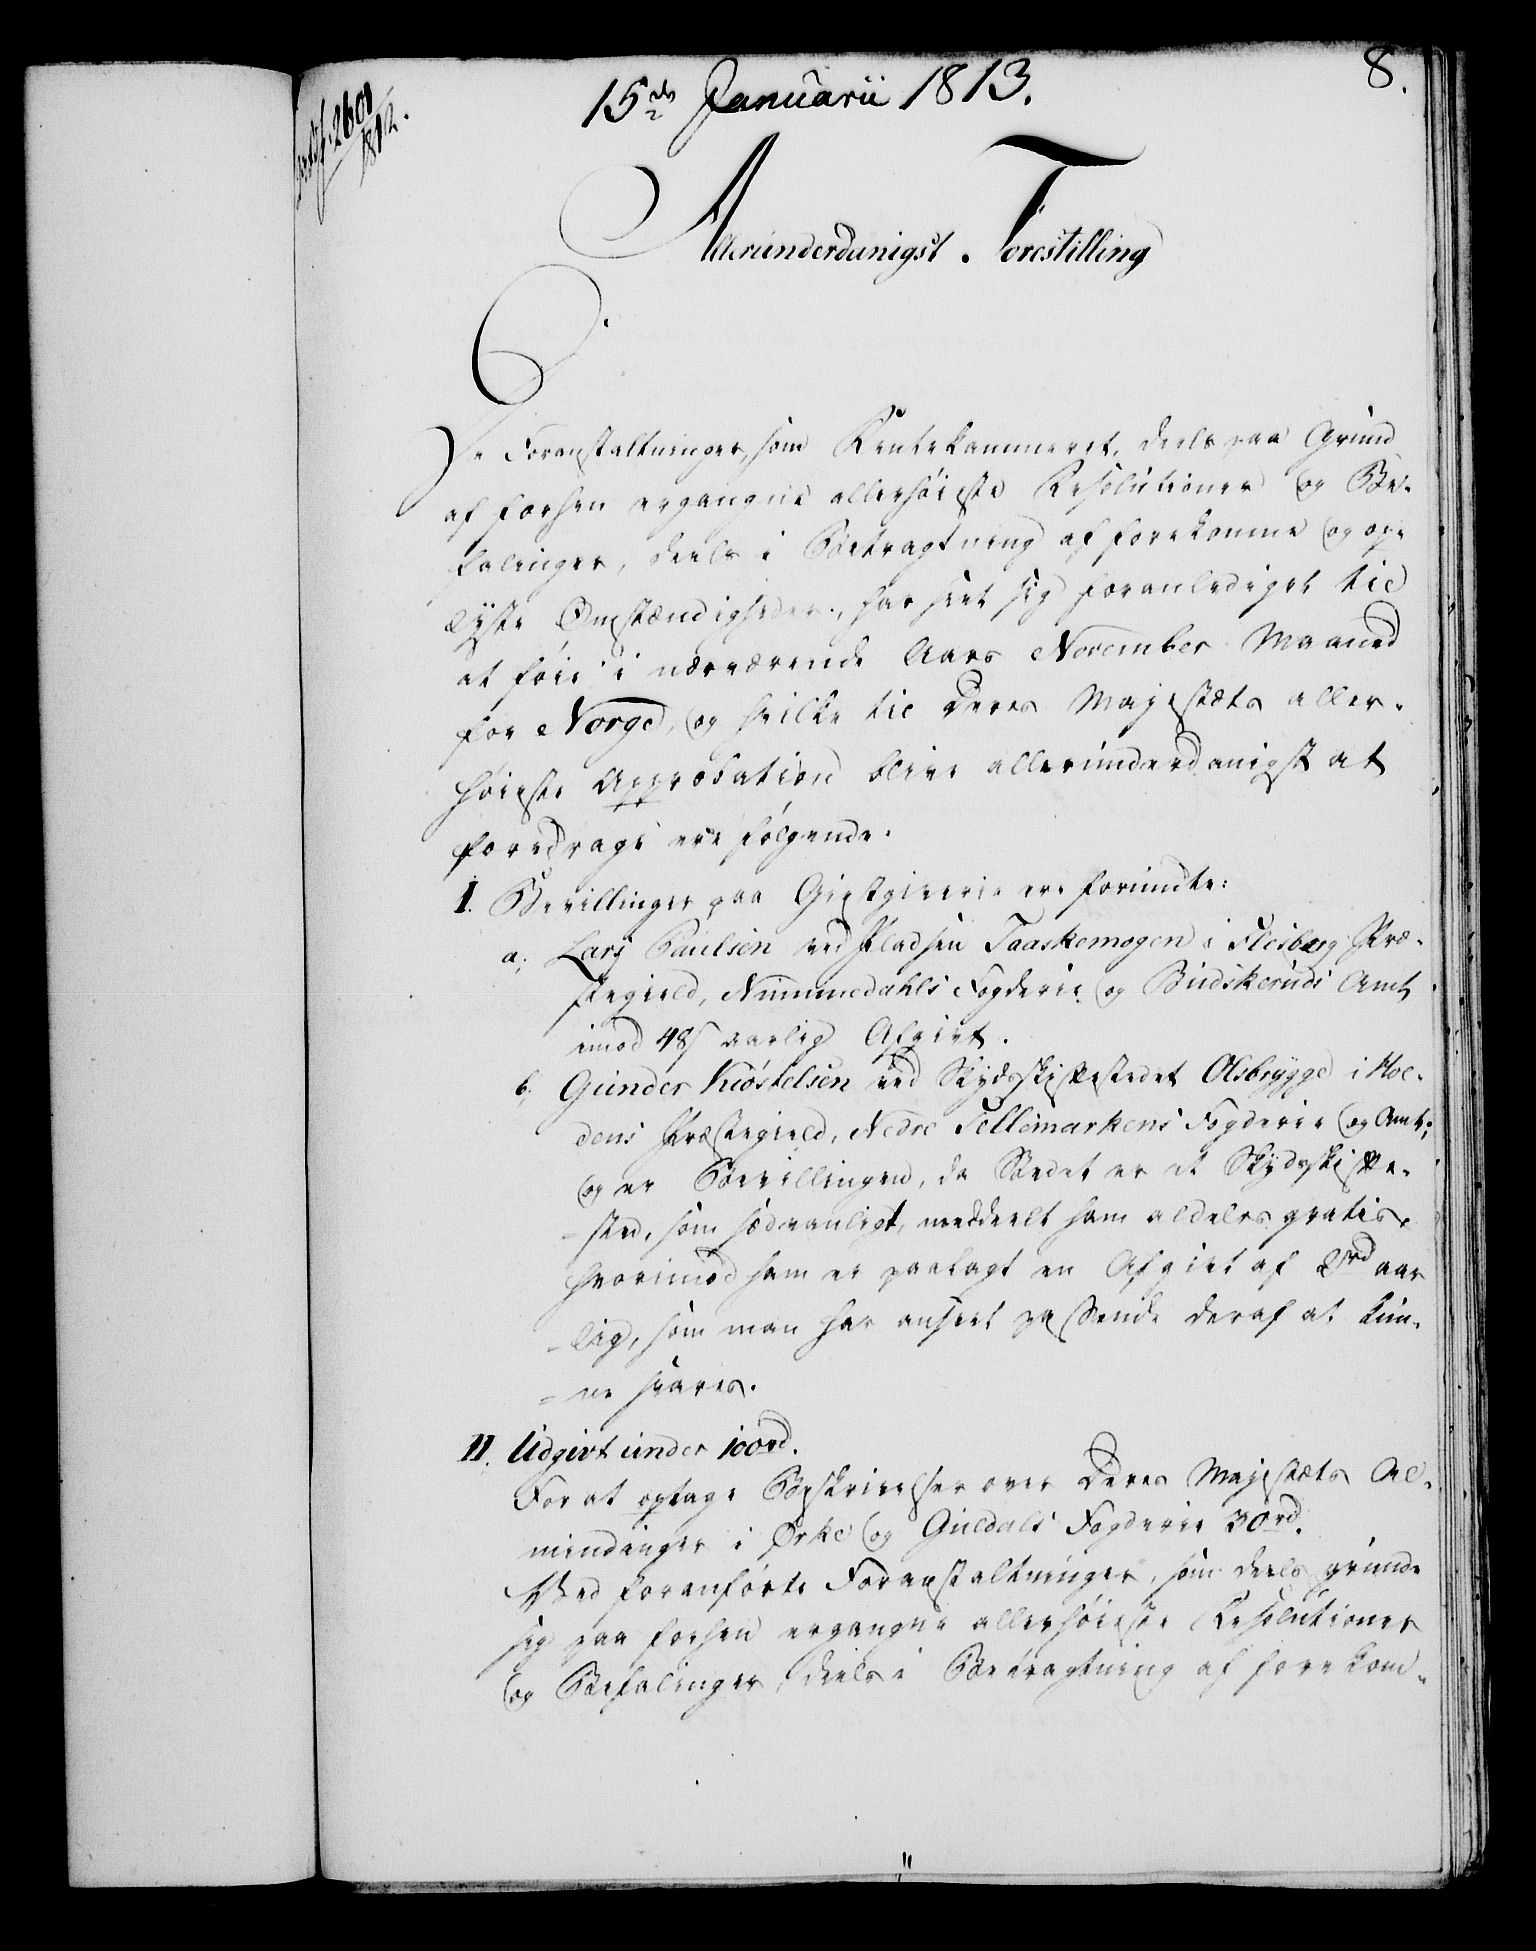 15de Januarii 1813.
8.
2600
1812.
Allerunderdanigst Forestilling
De Foranstaltninger, som Rentekammeret, deels paa Grund
af forhen ergangne allerhøieste Resolutioner og Be-
falinger, deels i Betragtning af forekomne og op-
lyste Omstændigheder, har seet sig foranlediget til
at føie i nærværende Aars November Maaned
for Norge, og hvilke til Deres Majestæts aller-
høieste Approbation blive allerunderdanigst at
foredrage ere følgende.
I. Bevillinger paa Giestgiverie ere forundte:
a, Lars Paulsen ved Pladsen Taaskemogen i Flesberg Præ-
stegield, Nummedahls Fogderie og Budskeruds Amt
imod 48s aarlig Afgivt.
b, Gunder Kiøstelsen ved Skydsskiftestedet Olsbrygge i Hol-
dens Præstegield, Nedre Tellemarkens Fogderie og Amt;
og er Bevillingen, da Stedet er et Skydsskifte-
-sted, som sædvanligt, meddeelt ham aldeles gratis,
hvorimod ham er paalagt en Afgivt af 2rd aar
-lig, som man har anseet passende deraf at kun-
-ne svares.
II. Udgivt under 100rd.
For at optage Beskrivelser over Deres Majestæts Al-
mindinger i Ørke og Guldals Fogderie 30rd.
Med foranførte Foranstaltninger, som deels grunde
sig paa forhen ergangne allerhøieste Resolutioner
og Befalinger, deels i Betragtning af forekom-